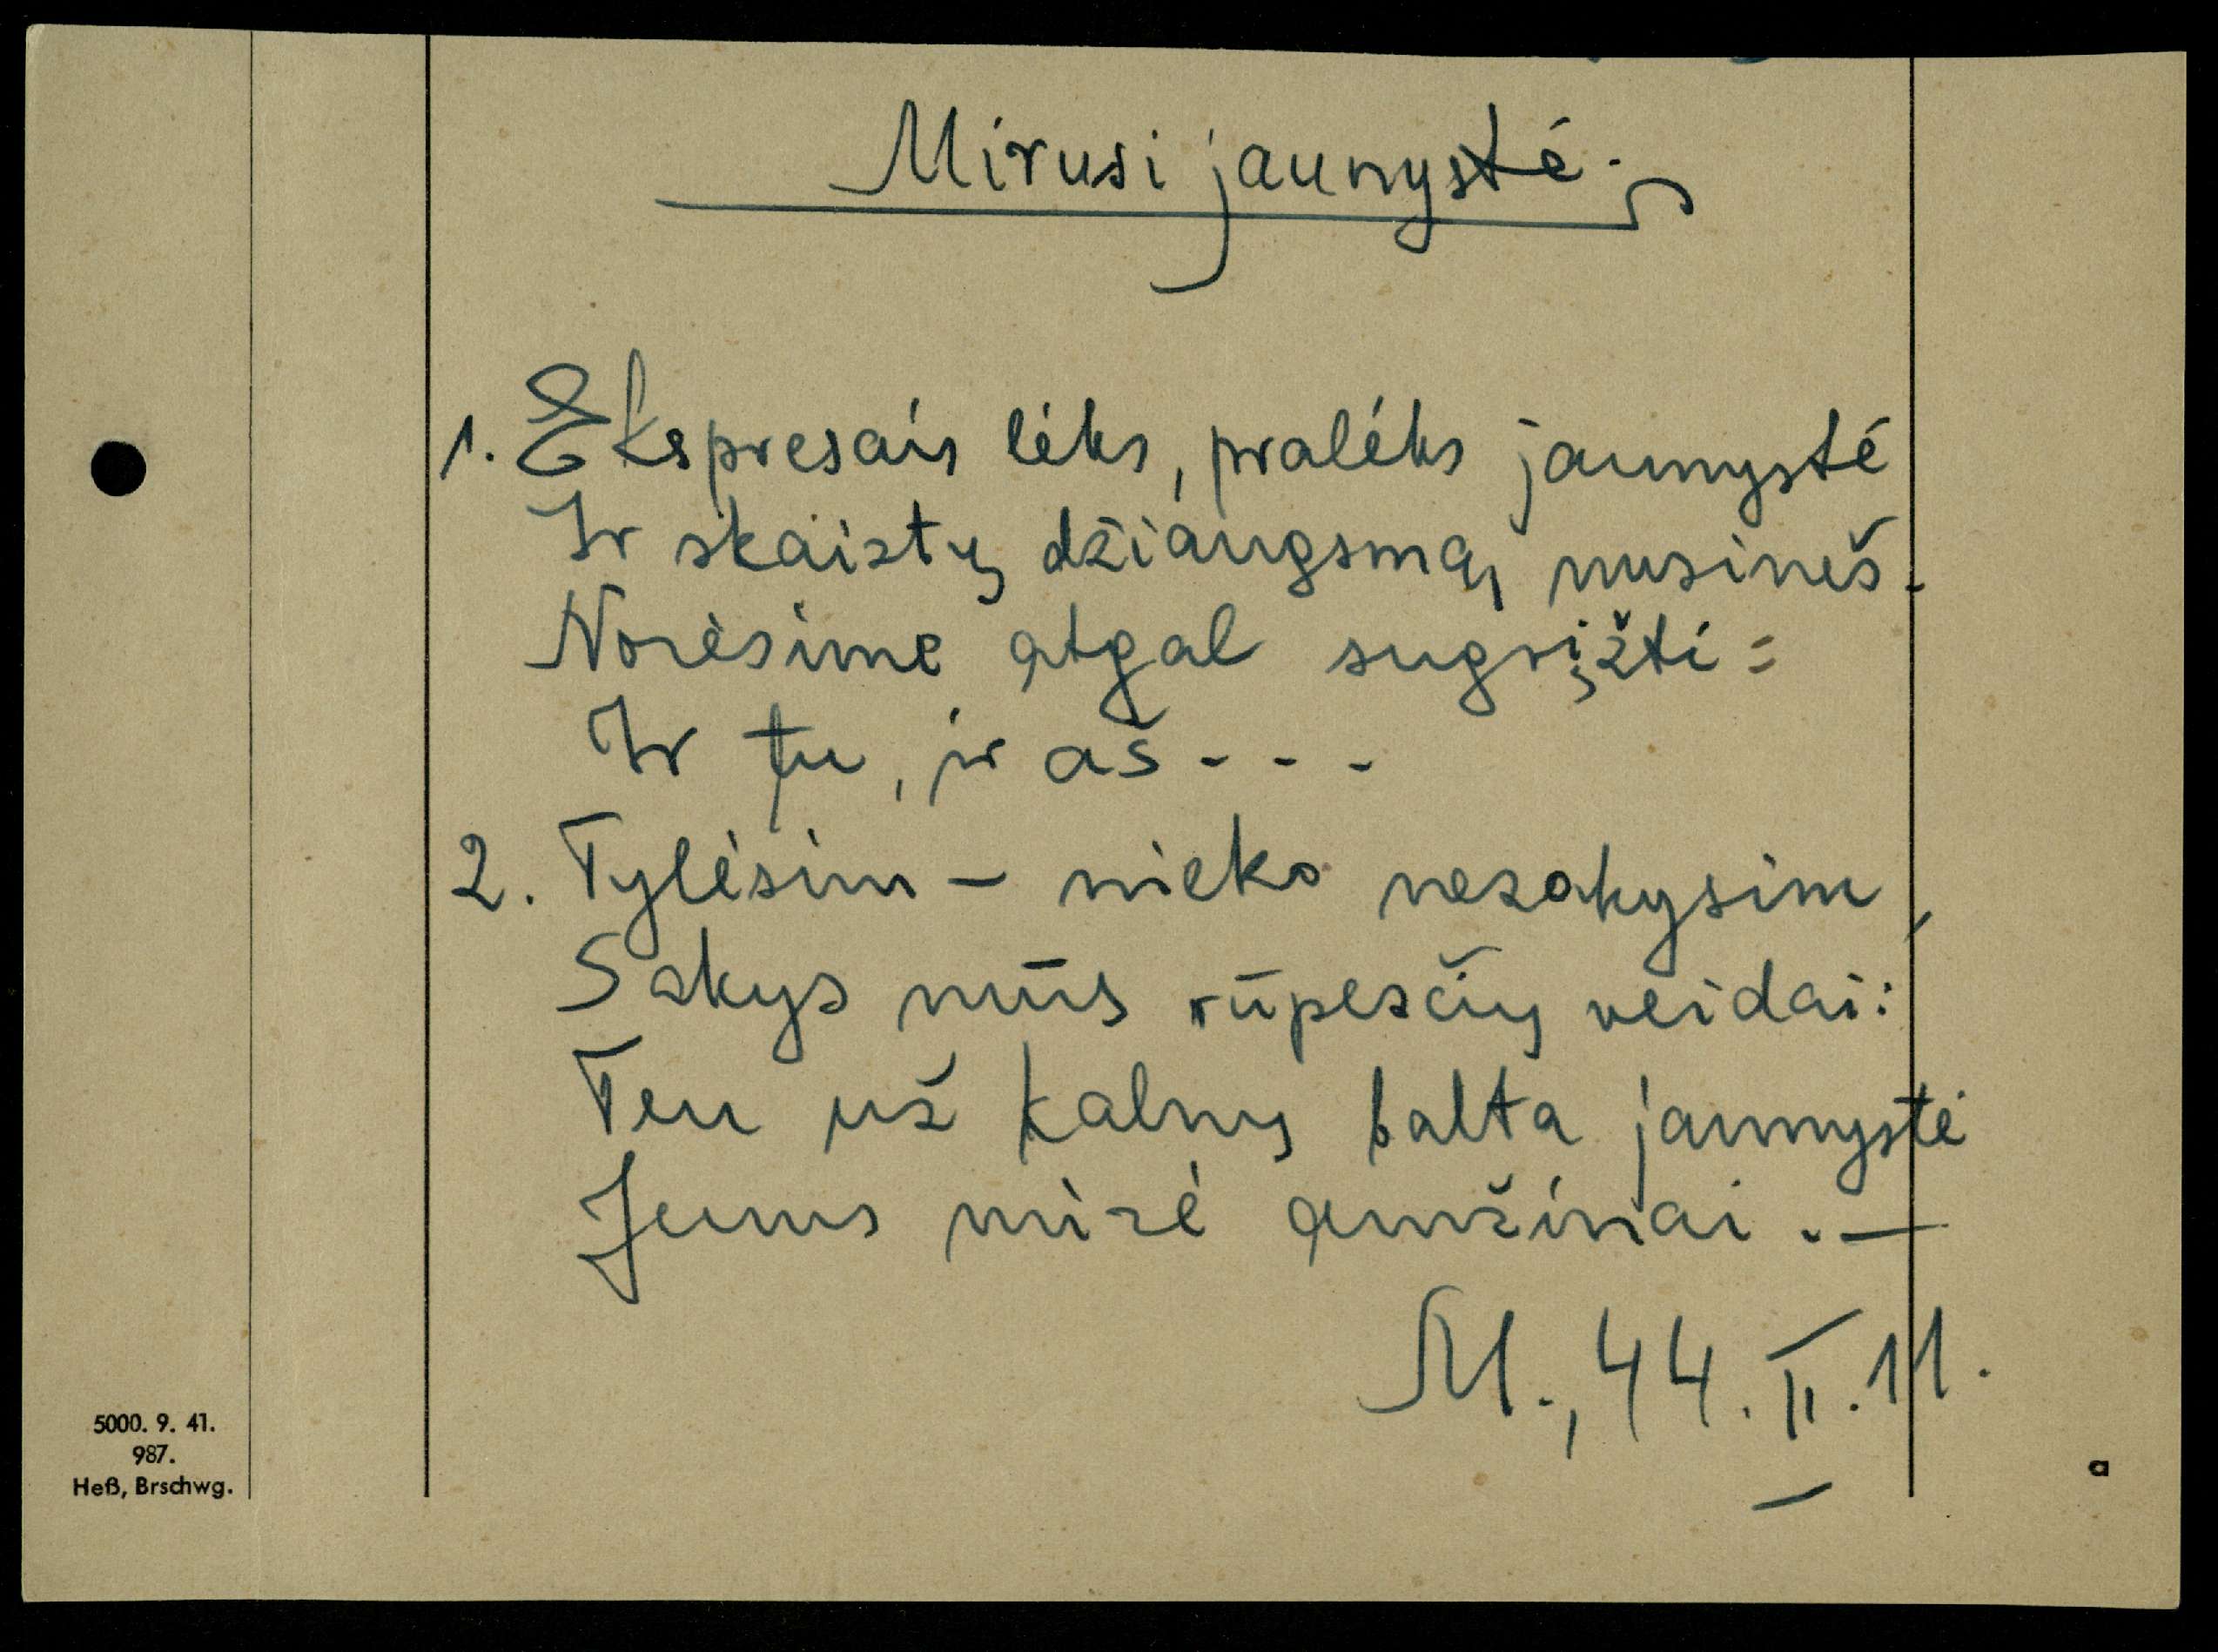 Mirusi jaunystė.
1. Ekspresais lėks, pralėks jaunystė
Ir skaistų džiaugsmą nusineš.
Norėsime atgal sugrįžti:
Ir tu, ir aš...
2. Tylėsim – nieko nesakysim,
Sakys mūs rūpesčių veidai:
Ten už kalnų balta jaunystė
Jums mirė amžinai. —
M., 44.II.11.
5000. 9. 41.
987.
Heß, Brschwg.
a